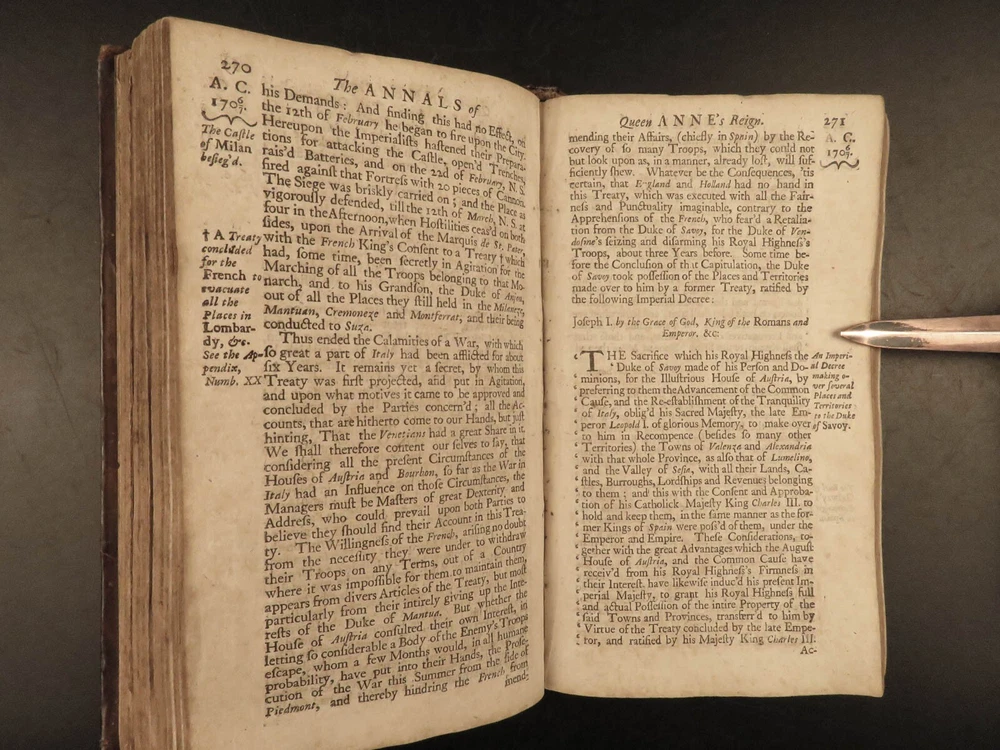 270
The ANNALS of
A. C.
170 6/7.
The Castle
of Milan
besieg'd.
his Demands: And finding this had no Effect, on
the 12th of February he began to fire upon the City.
Hereupon the Imperialists hastened their Prepara-
tions for attacking the Castle, open'd Trenches,
rais'd Batteries, and on the 22d of February, N. S.
fired against that Fortress with 20 pieces of Cannon.
The Siege was briskly carried on; and the Place as
vigorously defended, till the 12th of March, N. S. at
four in the Afternoon, when Hostilities ceas'd on both
sides, upon the Arrival of the Marquis de St. Pater,
with the French King's Consent to a Treaty † which
had, some time, been secretly in Agitation for the
Marching of all the Troops belonging to that Mo-
narch, and to his Grandson, the Duke of Anjou,
out of all the Places they still held in the Milaneze,
Mantuan, Cremoneze and Montferrat, and their being
conducted to Suza.
† A Treaty
concluded
for the
French to
evacuate
all the
Places in
Lombar-
dy, &c.
See the Ap-
pendix,
Numb. XX
Thus ended the Calamities of a War, with which
so great a part of Italy had been afflicted for about
six Years. It remains yet a secret, by whom this
Treaty was first projected, and put in Agitation,
and upon what motives it came to be approved and
concluded by the Parties concern'd; all the Ac-
counts, that are hitherto come to our Hands, but just
hinting, That the Venetians had a great Share in it.
We shall therefore content our selves to say, that
considering all the present Circumstances of the
Houses of Austria and Bourbon, so far as the War in
Italy had an Influence on those Circumstances, the
Managers must be Masters of great Dexterity and
Address, who could prevail upon both Parties to
believe they should find their Account in this Trea-
ty. The Willingness of the French, arising no doubt
from the necessity they were under to withdraw
their Troops on any Terms, out of a Country
where it was impossible for them to maintain them,
appears from divers Articles of the Treaty, but most
particularly from their intirely giving up the Inte-
rests of the Duke of Mantua. But whether the
House of Austria consulted their own Interest, in
letting so considerable a Body of the Enemy's Troops
escape, whom a few Months would, in all humane
probability, have put into their Hands, the Prose-
cution of the War this Summer from the side of
Piedmont, and thereby hindring the French from
mend-
Queen ANNE's Reign.
271
A. C.
170 6/7.
mending their Affairs, (chiefly in Spain) by the Re-
covery of so many Troops, which they could not
but look upon as, in a manner, already lost, will suf-
ficiently shew. Whatever be the Consequences, 'tis
certain, that England and Holland had no hand in
this Treaty, which was executed with all the Fair-
ness and Punctuality imaginable, contrary to the
Apprehensions of the French, who fear'd a Retalia-
tion from the Duke of Savoy, for the Duke of Ven-
dosme's seizing and disarming his Royal Highness's
Troops, about three Years before. Some time be-
fore the Conclusion of that Capitulation, the Duke
of Savoy took possession of the Places and Territories
made over to him by a former Treaty, ratified by
the following Imperial Decree:
Joseph I. by the Grace of God, King of the Romans and
Emperor. &c:
‘ THE Sacrifice which his Royal Highness the
‘ Duke of Savoy made of his Person and Do-
‘ minions, for the Illustrious House of Austria, by
‘ preferring to them the Advancement of the Common
‘ Cause, and the Re-establishment of the Tranquility
‘ of Italy, oblig'd his Sacred Majesty, the late Em-
‘ peror Leopold I. of glorious Memory, to make over
‘ to him in Recompence (besides so many other
‘ Territories) the Towns of Valenza and Alexandria
‘ with that whole Province, as also that of Lumelino,
‘ and the Valley of Sesia, with all their Lands, Ca-
‘ stles, Burroughs, Lordships and Revenues belonging
‘ to them; and this with the Consent and Approba-
‘ tion of his Catholick Majesty King Charles III. to
‘ hold and keep them, in the same manner as the for-
‘ mer Kings of Spain were poss'd of them, under the
‘ Emperor and Empire. These Considerations, to-
‘ gether with the great Advantages which the August
‘ House of Austria, and the Common Cause have
‘ receiv'd from his Royal Highness's Firmness in
‘ their Interest, have likewise induc'd his present Im-
‘ perial Majesty, to grant his Royal Highness full
‘ and actual Possession of the intire Property of the
‘ said Towns and Provinces, transferr'd to him by
‘ Virtue of the Treaty concluded by the late Empe-
‘ ror, and ratified by his Majesty King Charles III.
Ac-
An Imperi-
al Decree
making o-
ver several
Places and
Territories
to the Duke
of Savoy.